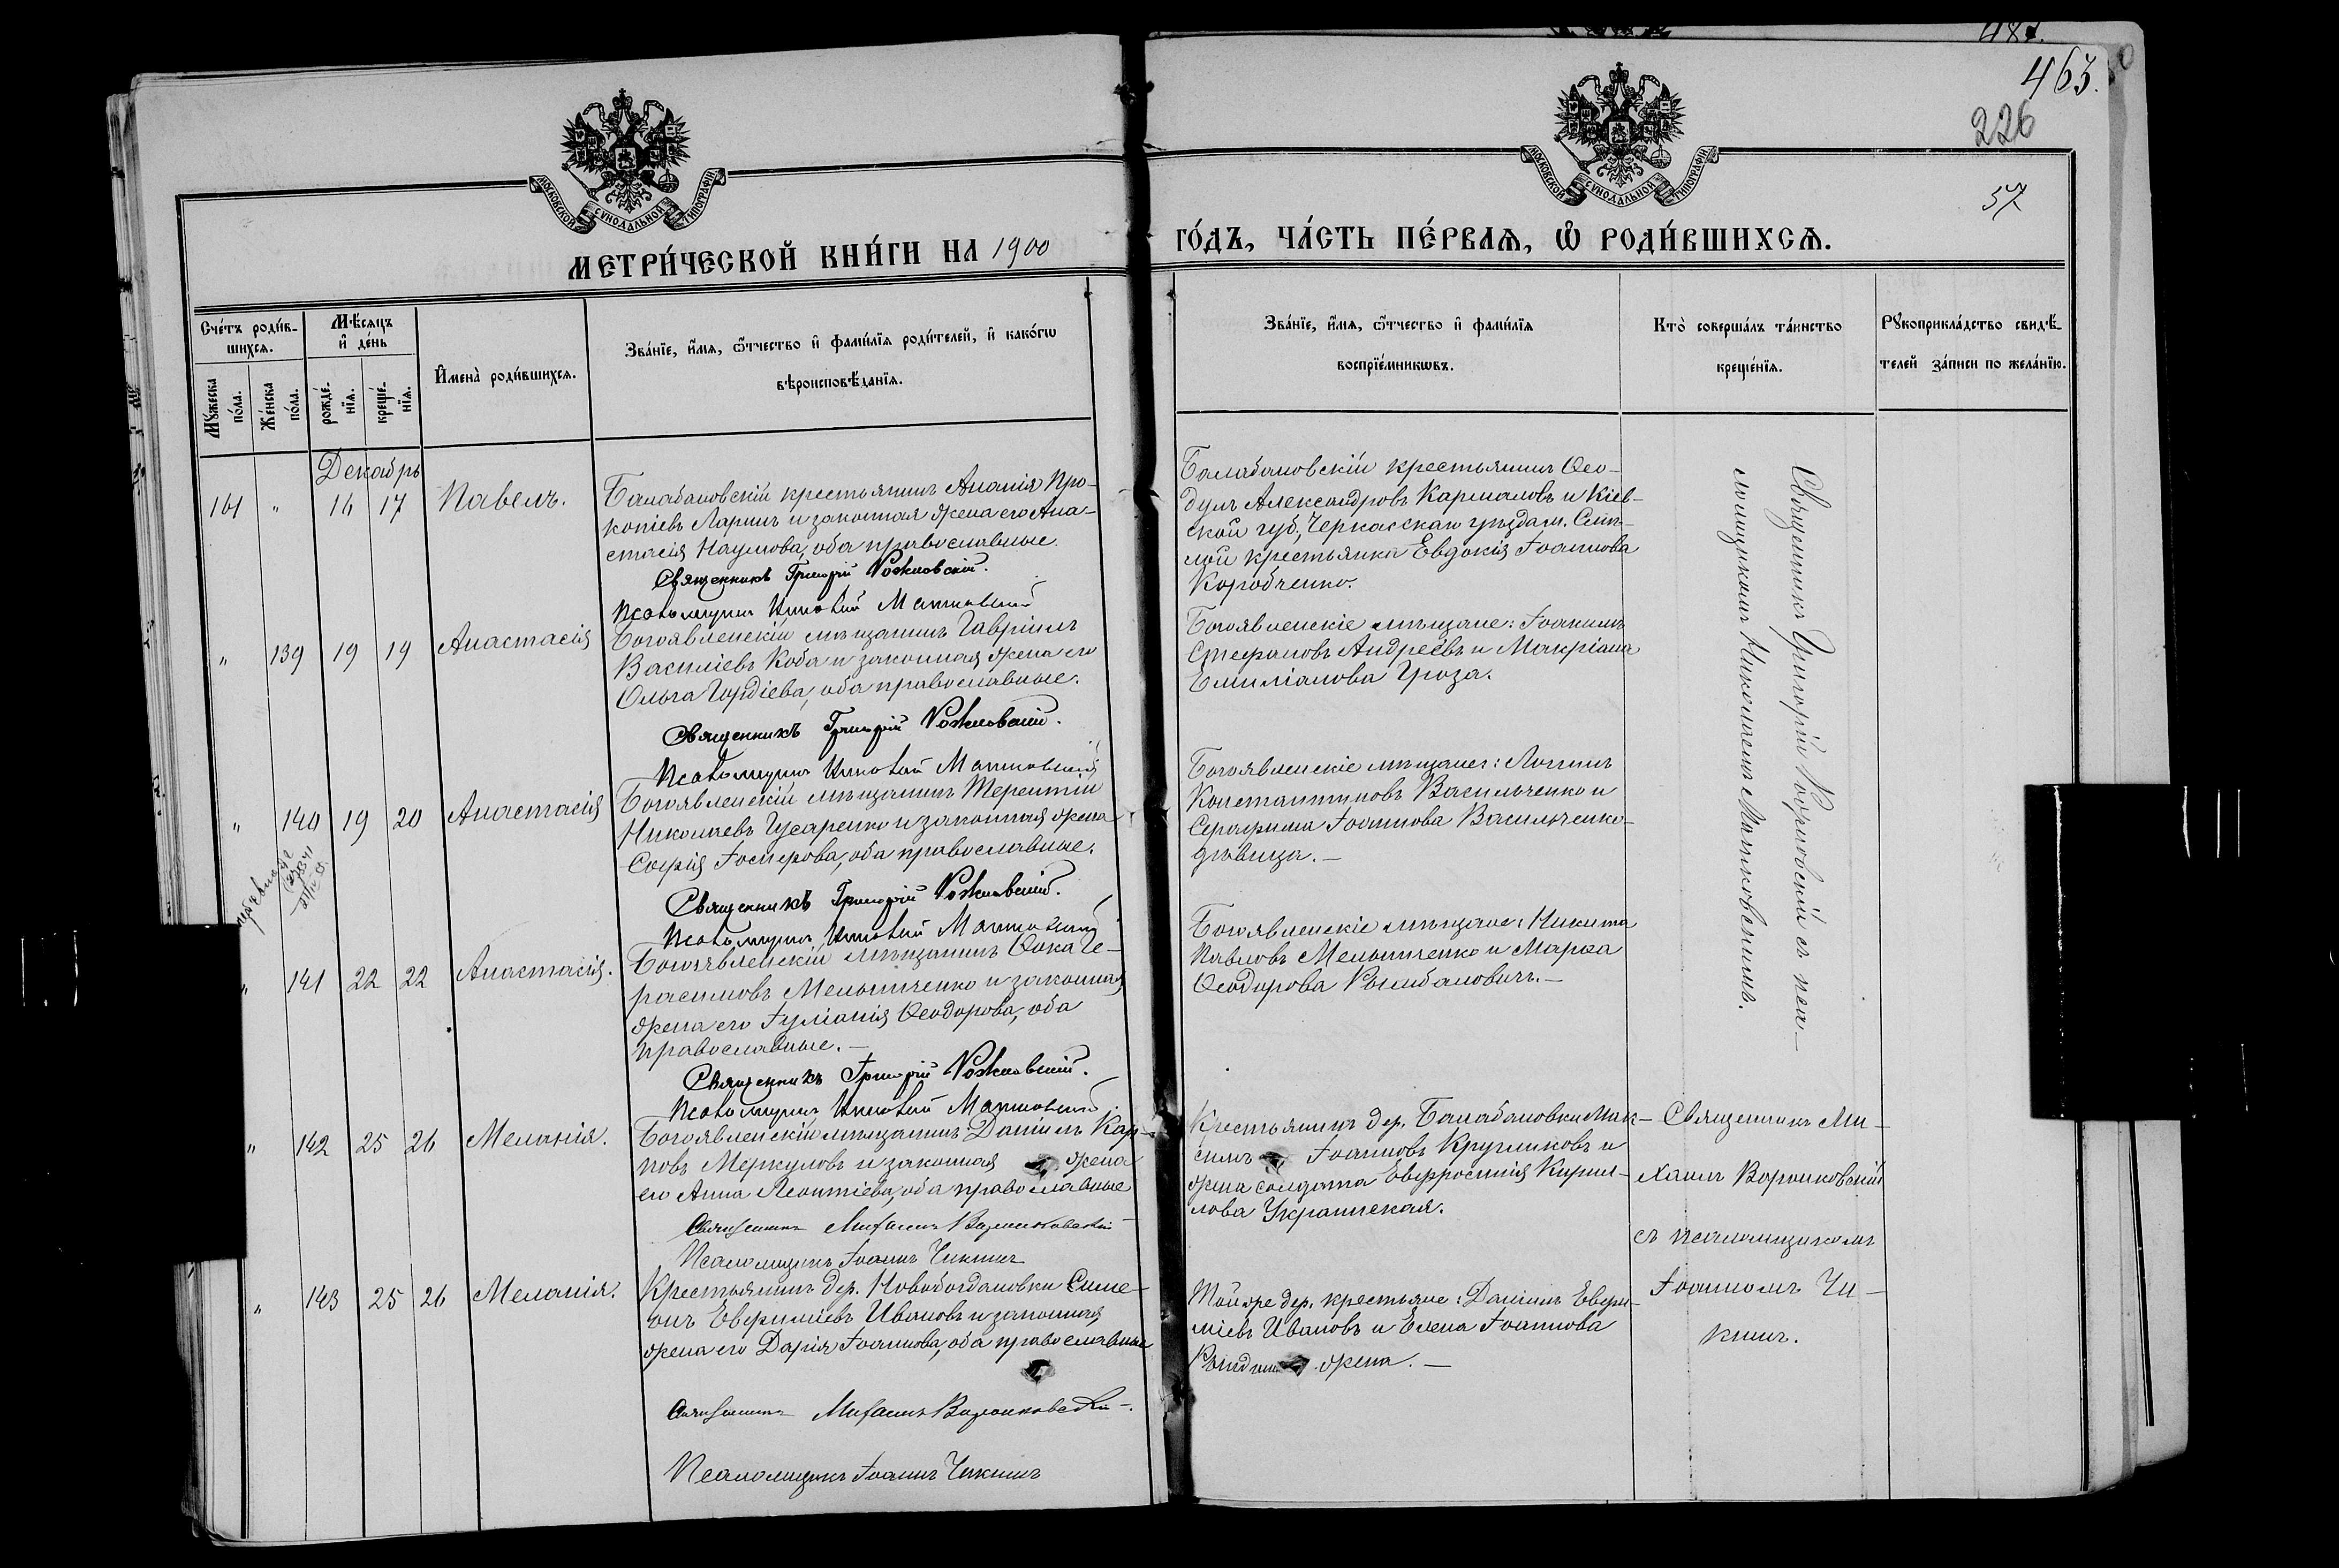 487.
463.
226
57
МОСКОВСКОЙ СѴНОДАЛЬНОЙ ТИПОГРАФІИ
МОСКОВСКОЙ СѴНОДАЛЬНОЙ ТИПОГРАФІИ
МЕТРИ́ЧЕСКОЙ КНИ́ГИ НА 1900
ГО́ДЪ, ЧА́СТЬ ПЕ́РВАѦ, Ѿ РОДИ́ВШИХСѦ.
Сче́тъ роди́в-
шихсѧ.
Мꙋ́жеска по́ла.
Же́нска по́ла.
Мѣ́сѧцъ
и҆ де́нь
рожде́-
нїѧ.
креще́-
нїѧ.
И҆мена̀ роди́вшихсѧ.
Зва́нїе, и҆́мѧ, ѻ҆́тчество и҆ фами́лїѧ роди́телей, и҆ како́гѡ
вѣроисповѣ́данїѧ.
Зва́нїе, и҆́мѧ, ѻ҆́тчество и҆ фами́лїѧ
воспрїе́мникѡвъ.
Кто̀ соверша́лъ та́инство
креще́нїѧ.
Рꙋкоприкла́дство свидѣ́-
телей за́писи по жела́нїю.
Декабрь
161 " 16 17 Павелъ.
Балабановскій крестьянинъ Ананія Про-
копіевъ Ларинъ и законная жена его Ана-
стасія Наумова, оба православные.
Священникъ Григорій
Псаломщикъ Николай Матковскій
Балабановскій крестьянинъ Ѳео-
дулъ Александровъ Кармаловъ и Кіев-
ской губ., Черкасскаго уѣзда м.
крестьянка Евдокія Іоаннова
Коробченко.
" 139 19 19 Анастасія
Богоявленскій мѣщанинъ Гавріилъ
Василіевъ Коба и законная жена его
Ольга Гордіева, оба православные.
Священникъ Григорій
Псаломщикъ Николай Матковскій
Богоявленскіе мѣщане: Іоакимъ
Стефановъ Андреевъ и Макріана
Емиліанова Гроза.
" 140 19 20 Анастасія
Богоявленскій мѣщанинъ Терентій
Николаевъ Гусаренко и законная жена
Софія Іосифова, оба православные.
Священникъ Григорій
Псаломщикъ Николай Матковскій
Богоявленскіе мѣщане: Логинъ
Константиновъ Васильченко и
Серафима Іоаннова Васильченко
дѣвица. —
" 141 22 22 Анастасія.
Богоявленскій мѣщанинъ Ѳока Ге-
расимовъ Мельниченко и законная
жена его Іуліанія Ѳеодорова, оба
православные. —
Священникъ Григорій
Псаломщикъ Николай Матковскій
Богоявленскіе мѣщане: Никита
Павловъ Мельниченко и Марѳа
Ѳеодорова
Священникъ Григорій съ псал-
ломщикомъ Николаемъ Матковскимъ.
" 142 25 26 Меланія.
Богоявленскій мѣщанинъ Даніилъ Кар-
повъ Меркуловъ и законная жена
его Анна Леонтіева, оба православные
Священникъ Михаилъ Воронковскій
Псаломщикъ Іоаннъ Чикинъ
Крестьянинъ дер. Балабановки Мак-
симъ Іоанновъ Кругликовъ и
жена солдата Евфросинія Кирил-
лова Украинская.
Священникъ Ми-
хаилъ Воронковскій
съ псаломщикомъ
Іоанномъ Чи-
кинъ.
" 143 25 26 Меланія.
Крестьянинъ дер. Новобогдановки Симе-
онъ Евфиміевъ Ивановъ и законная
жена его Дарія Іоаннова, оба православные
Священникъ Михаилъ Воронковскій.
Псаломщикъ Іоаннъ Чикинъ
Той же дер. крестьяне: Даніилъ Евфи-
міевъ Ивановъ и Елена Іоаннова
жена. —